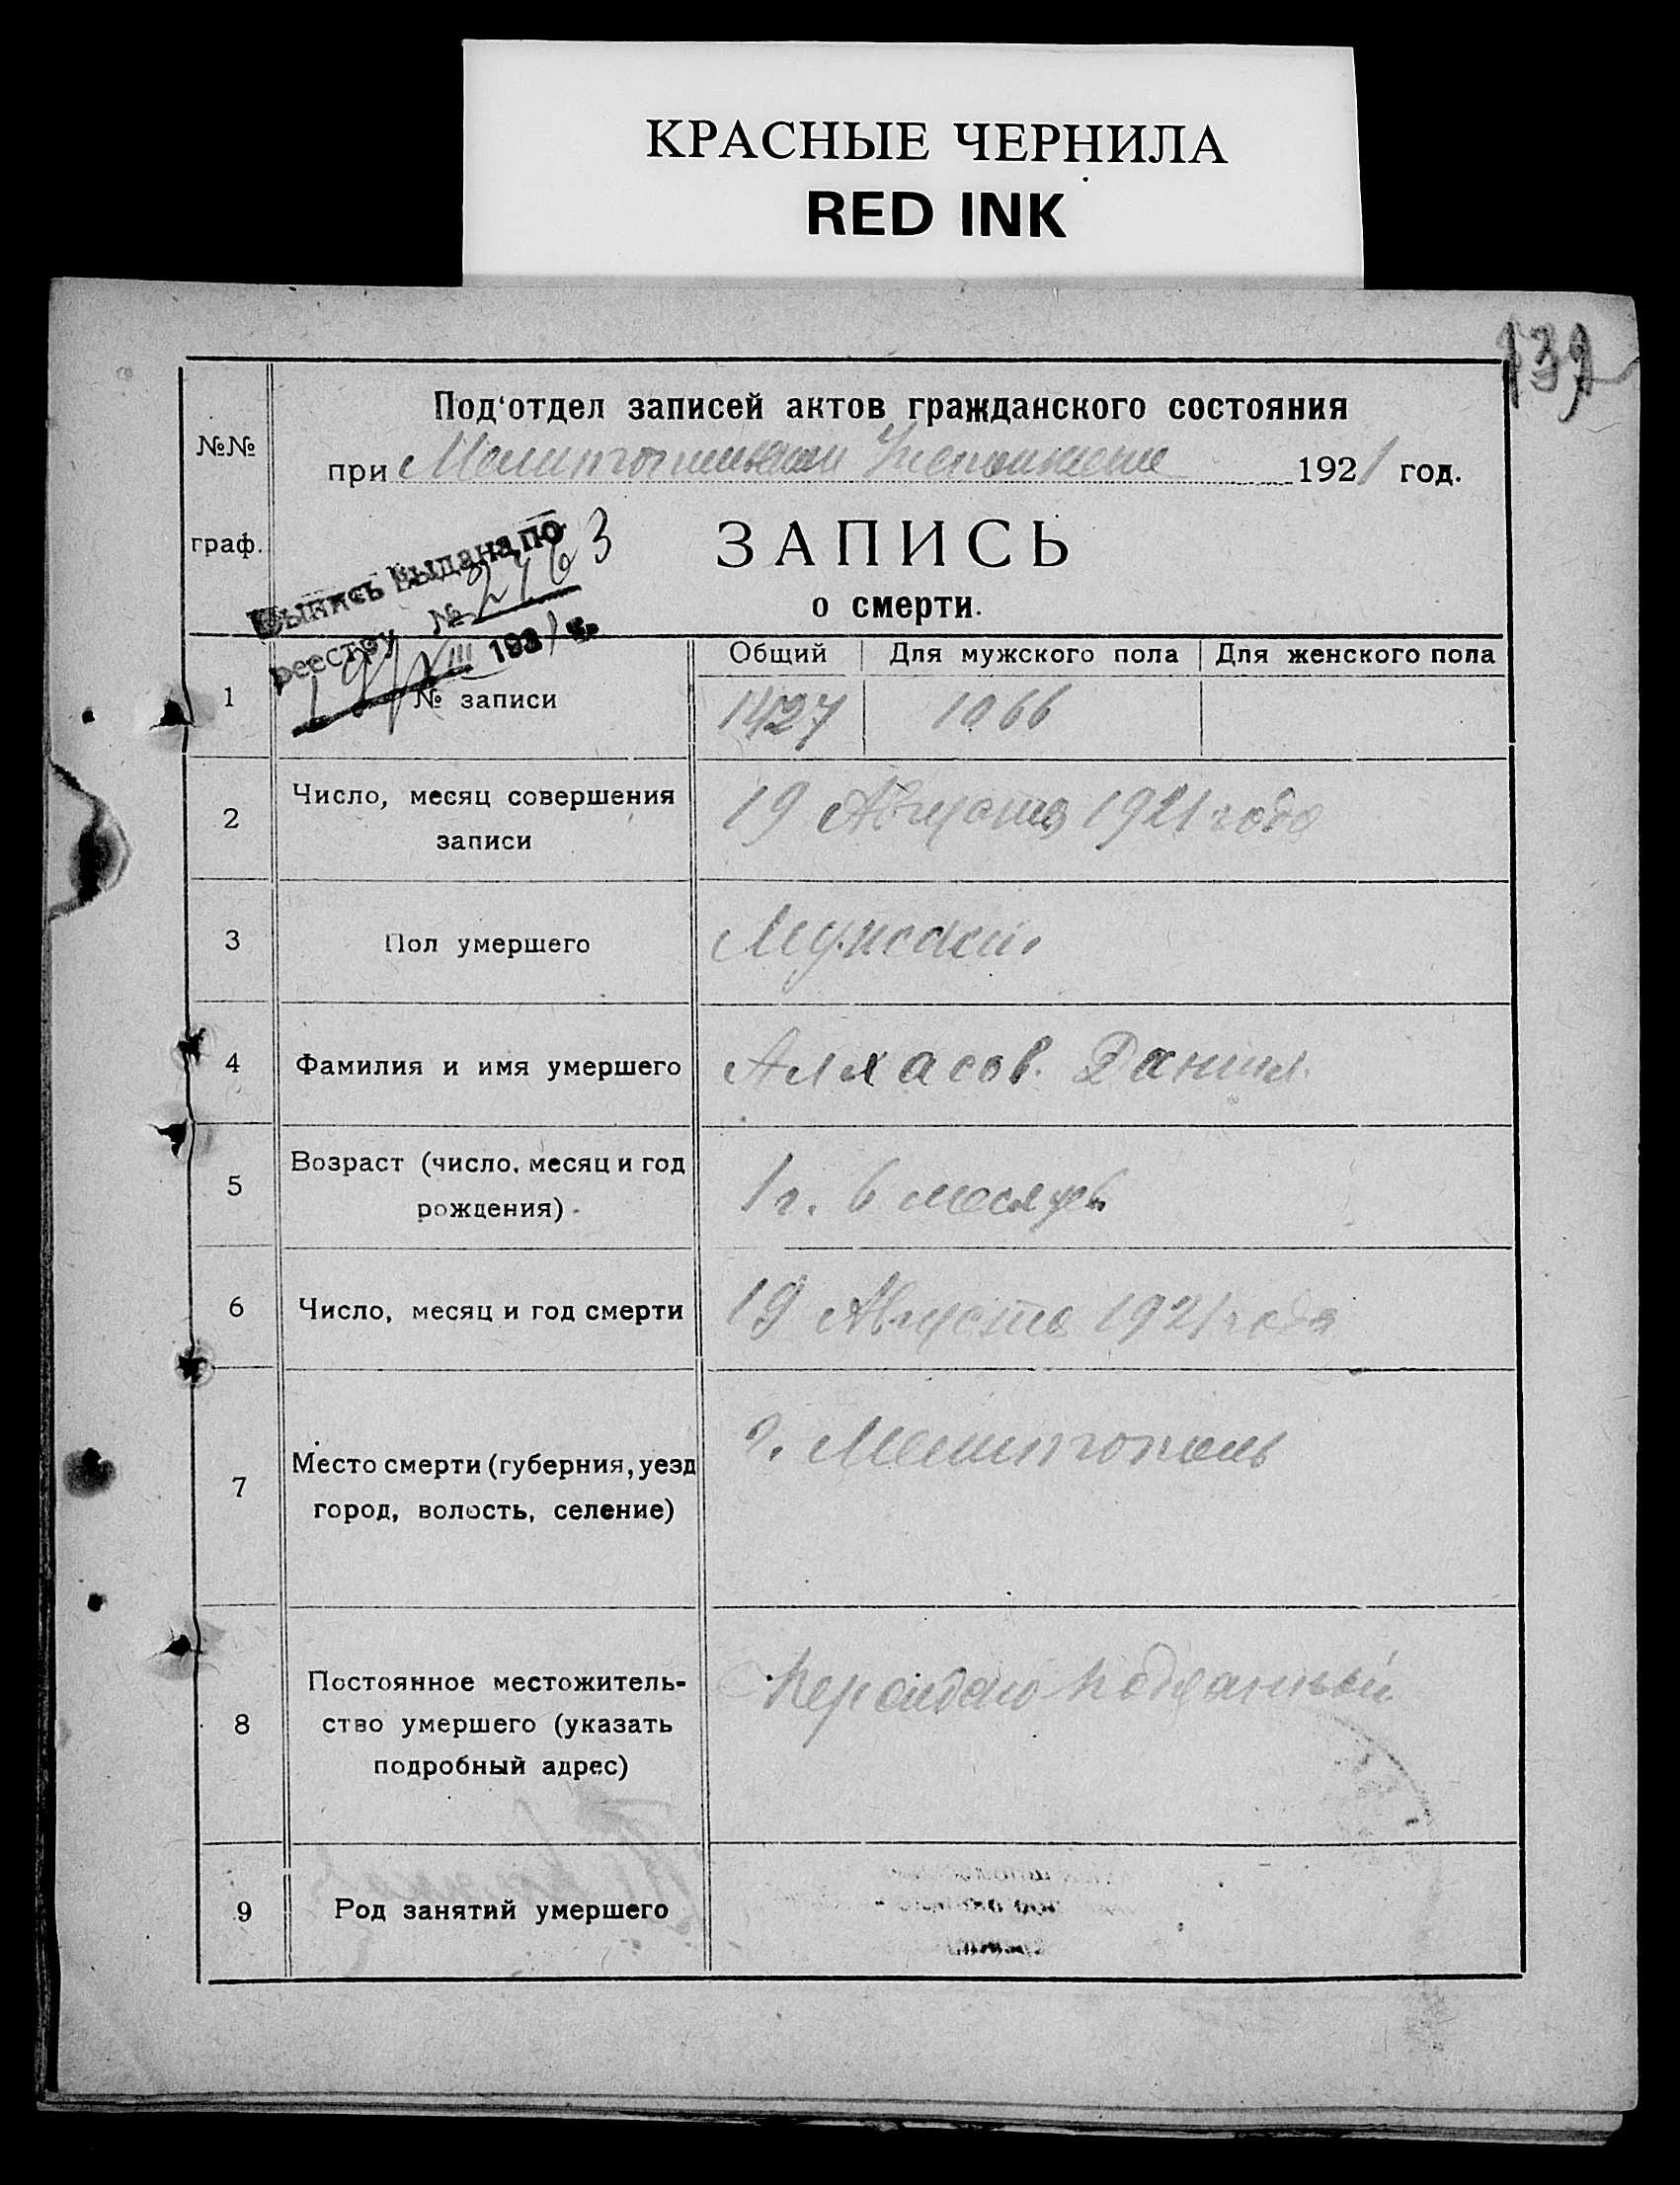 КРАСНЫЕ ЧЕРНИЛА
RED INK
139
№№
граф.
Под'отдел записей актов гражданского состояния
при Мелитопольском Исполкоме 1921 год.
Выпись выдана по
реестру № 2763
19/VIII 1921 г.
ЗАПИСЬ
о смерти.
Общий Для мужского пола Для женского пола
1 № записи 1427 1066
2 Число, месяц совершения
записи
19 Августа 1921 года
3 Пол умершего Мужской
4 Фамилия и имя умершего Аллхасов. Даниил.
5 Возраст (число, месяц и год
рождения)
1 г. 6 месяцев
6 Число, месяц и год смерти 19 Августа 1921 года
7 Место смерти (губерния, уезд
город, волость, селение)
г. Мелитополь
8 Постоянное местожитель-
ство умершего (указать
подробный адрес)
подданный
9 Род занятий умершего